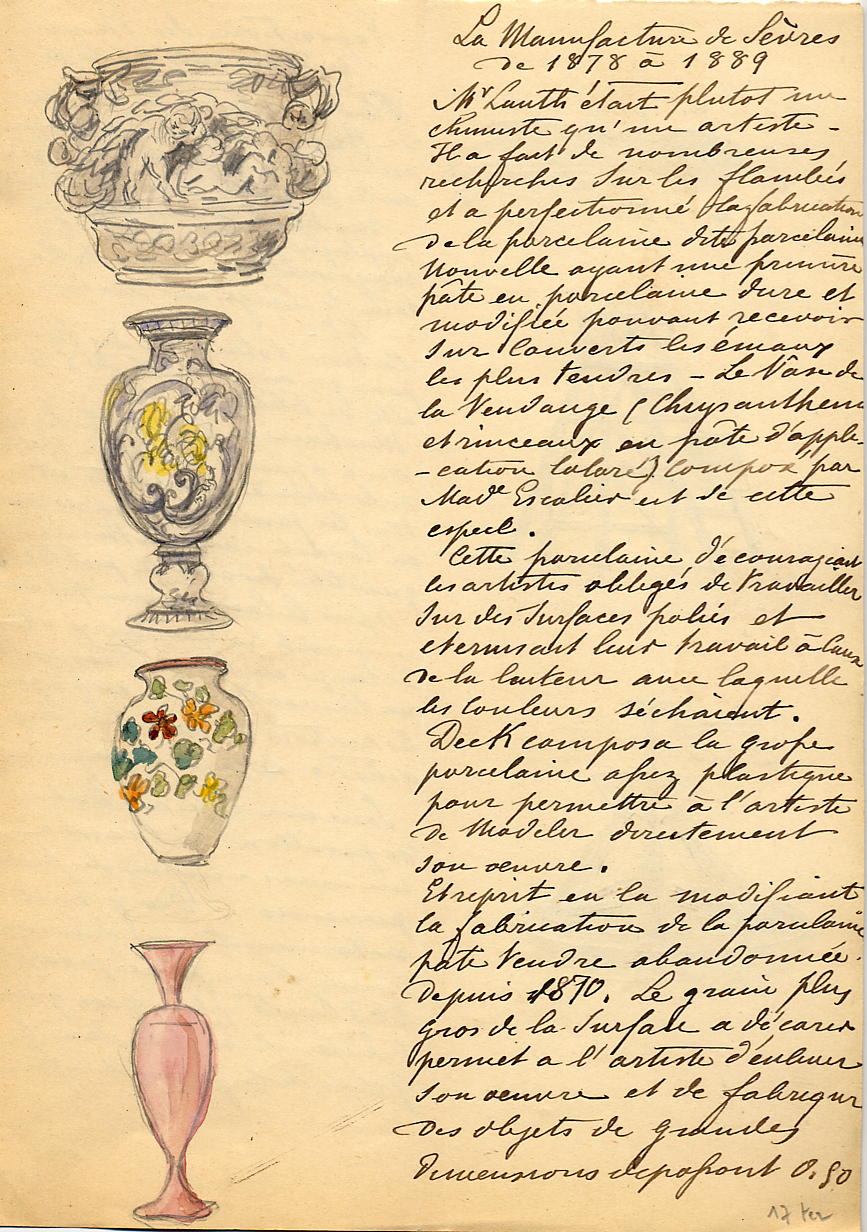 La Manufacture de Sèvres
de 1878 à 1889
Mr Lauth était plutot un
chimiste qu'un artiste -
Il a fait de nombreuses
recherches sur les flambés
et a perfectionné la fabrication
de la porcelaine dite porcelaine
nouvelle ayant une première
pâte en porcelaine dure et
modifiée pouvant recevoir
sur couverts les émaux
les plus tendres - Le Vâse de
la Vendange ( Chrysanthem
et rinceaux en pâte d'appli-
-cation coloré) composé par
Made Escalier est de cette
espece.
Cette porcelaine décourageait
les artistes obligés de travailler
sur des surfaces polies et
et leur travail à cause
de la lenteur avec laquelle
les couleurs séchaient.
Deck composa la grosse
porcelaine assez plastique
pour permettre à l'artiste
de modeler directement
son oeuvre.
Et reprit en la modifiant
la fabrication de la porcelaine
pâte tendre abandonnée
depuis 1870. Le grain plus
gros de la surface a décorer
permet a l'artiste d'enlever
son oeuvre et de fabriquer
des objets de grandes
dimensions depassant 0.50
17 ter